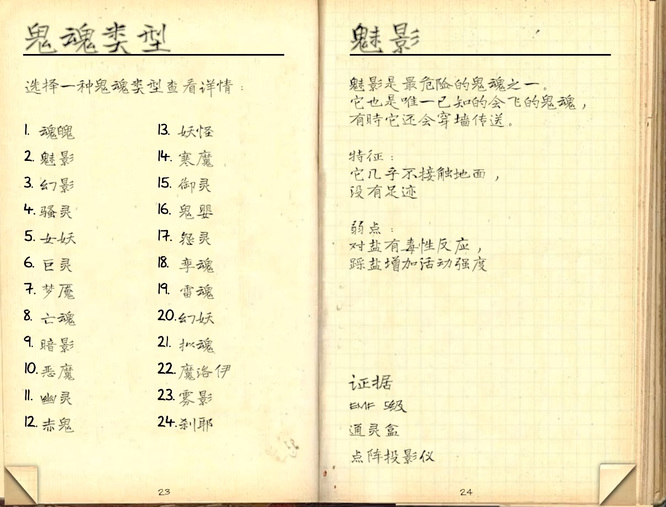 鬼魂类型
选择一种鬼魂类型查看详情：
1. 魂魄
2. 魅影
3. 幻影
4. 骚灵
5. 女妖
6. 巨灵
7. 梦魇
8. 亡魂
9. 暗影
10. 恶魔
11. 幽灵
12. 赤鬼
13. 妖怪
14. 寒魔
15. 御灵
16. 鬼婴
17. 怨灵
18. 孪魂
19. 雷魂
20. 幻妖
21. 拟魂
22. 魔洛伊
23. 雾影
24. 刹耶
23
魅影
魅影是最危险的鬼魂之一。
它也是唯一已知的会飞的鬼魂，
有时它还会穿墙传送。
特征：
它几乎不接触地面，
没有足迹
弱点：
对盐有毒性反应，
踩盐增加活动强度
证据
EMF 5级
通灵盒
点阵投影仪
24